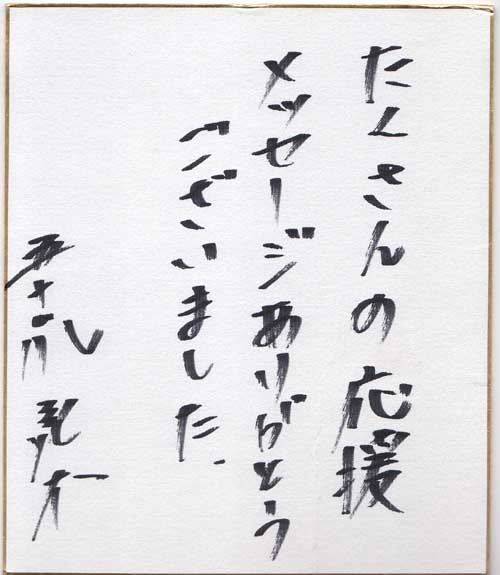 たくさんの応援
メッセージありがとう
ございました、
五十嵐